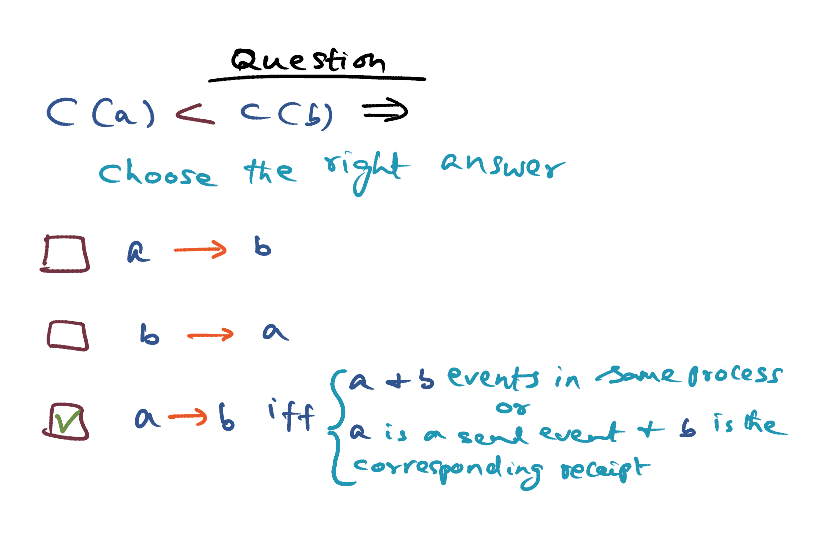 Question
C (a) < C (b) ⇒
choose the right answer
a → b
b → a
a → b iff { a + b events in same process
or
a is a send event + b is the
corresponding receipt